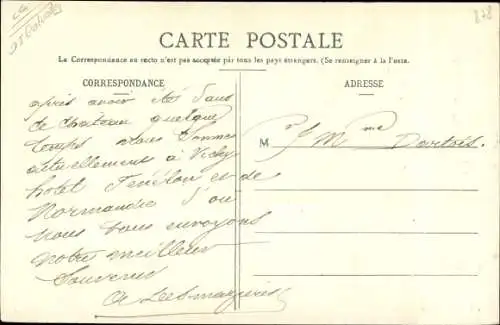 878
CARTE POSTALE
La Correspondance au recto n'est pas acceptée par tous les pays étrangers. (Se renseigner à la Poste.
CORRESPONDANCE
ADRESSE
après avoir été dans
ce chateau quelque
temps nous sommes
actuellement a Vichy
hotel Fénélon et de
Normandie d'ou
nous vous envoyons
notre meilleur
Souvenir
M r et Mme Dartois.